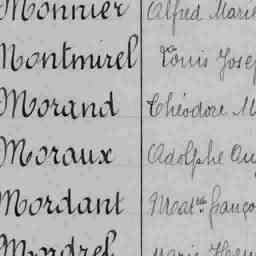 Monnier Alfred Marie
Montmirel Louis Josep
Morand Théodore M
Moraux Adolphe Au
Mordant Math. franço
Mordrel Marie